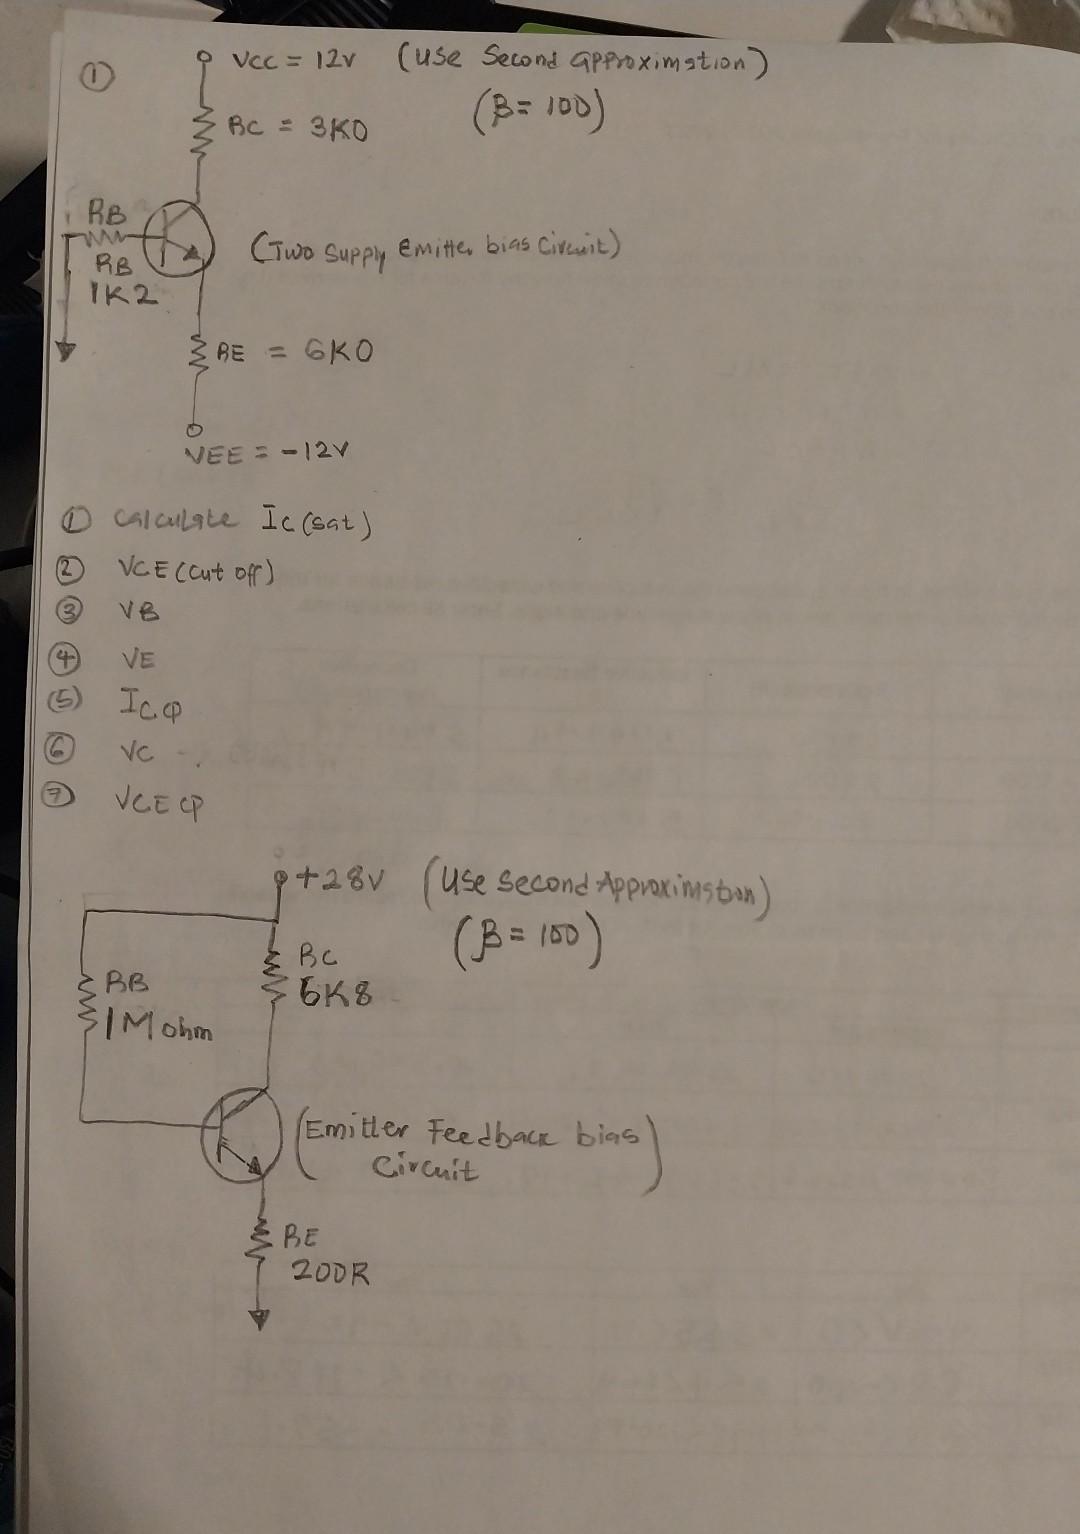 ① VCC = 12V (Use Second Approximation)
(β = 100)
RC = 3K0
RB
RB
1K2
(Two Supply Emitter bias Circuit)
RE = 6K0
VEE = -12V
① Calculate IC (sat)
② VCE (Cut off)
③ VB
④ VE
⑤ ICQ
⑥ VC
⑦ VCEQ
+28V (Use Second Approximation)
(β = 100)
RC
6K8
RB
1M ohm
(Emitter Feedback bias
Circuit)
RE
200R